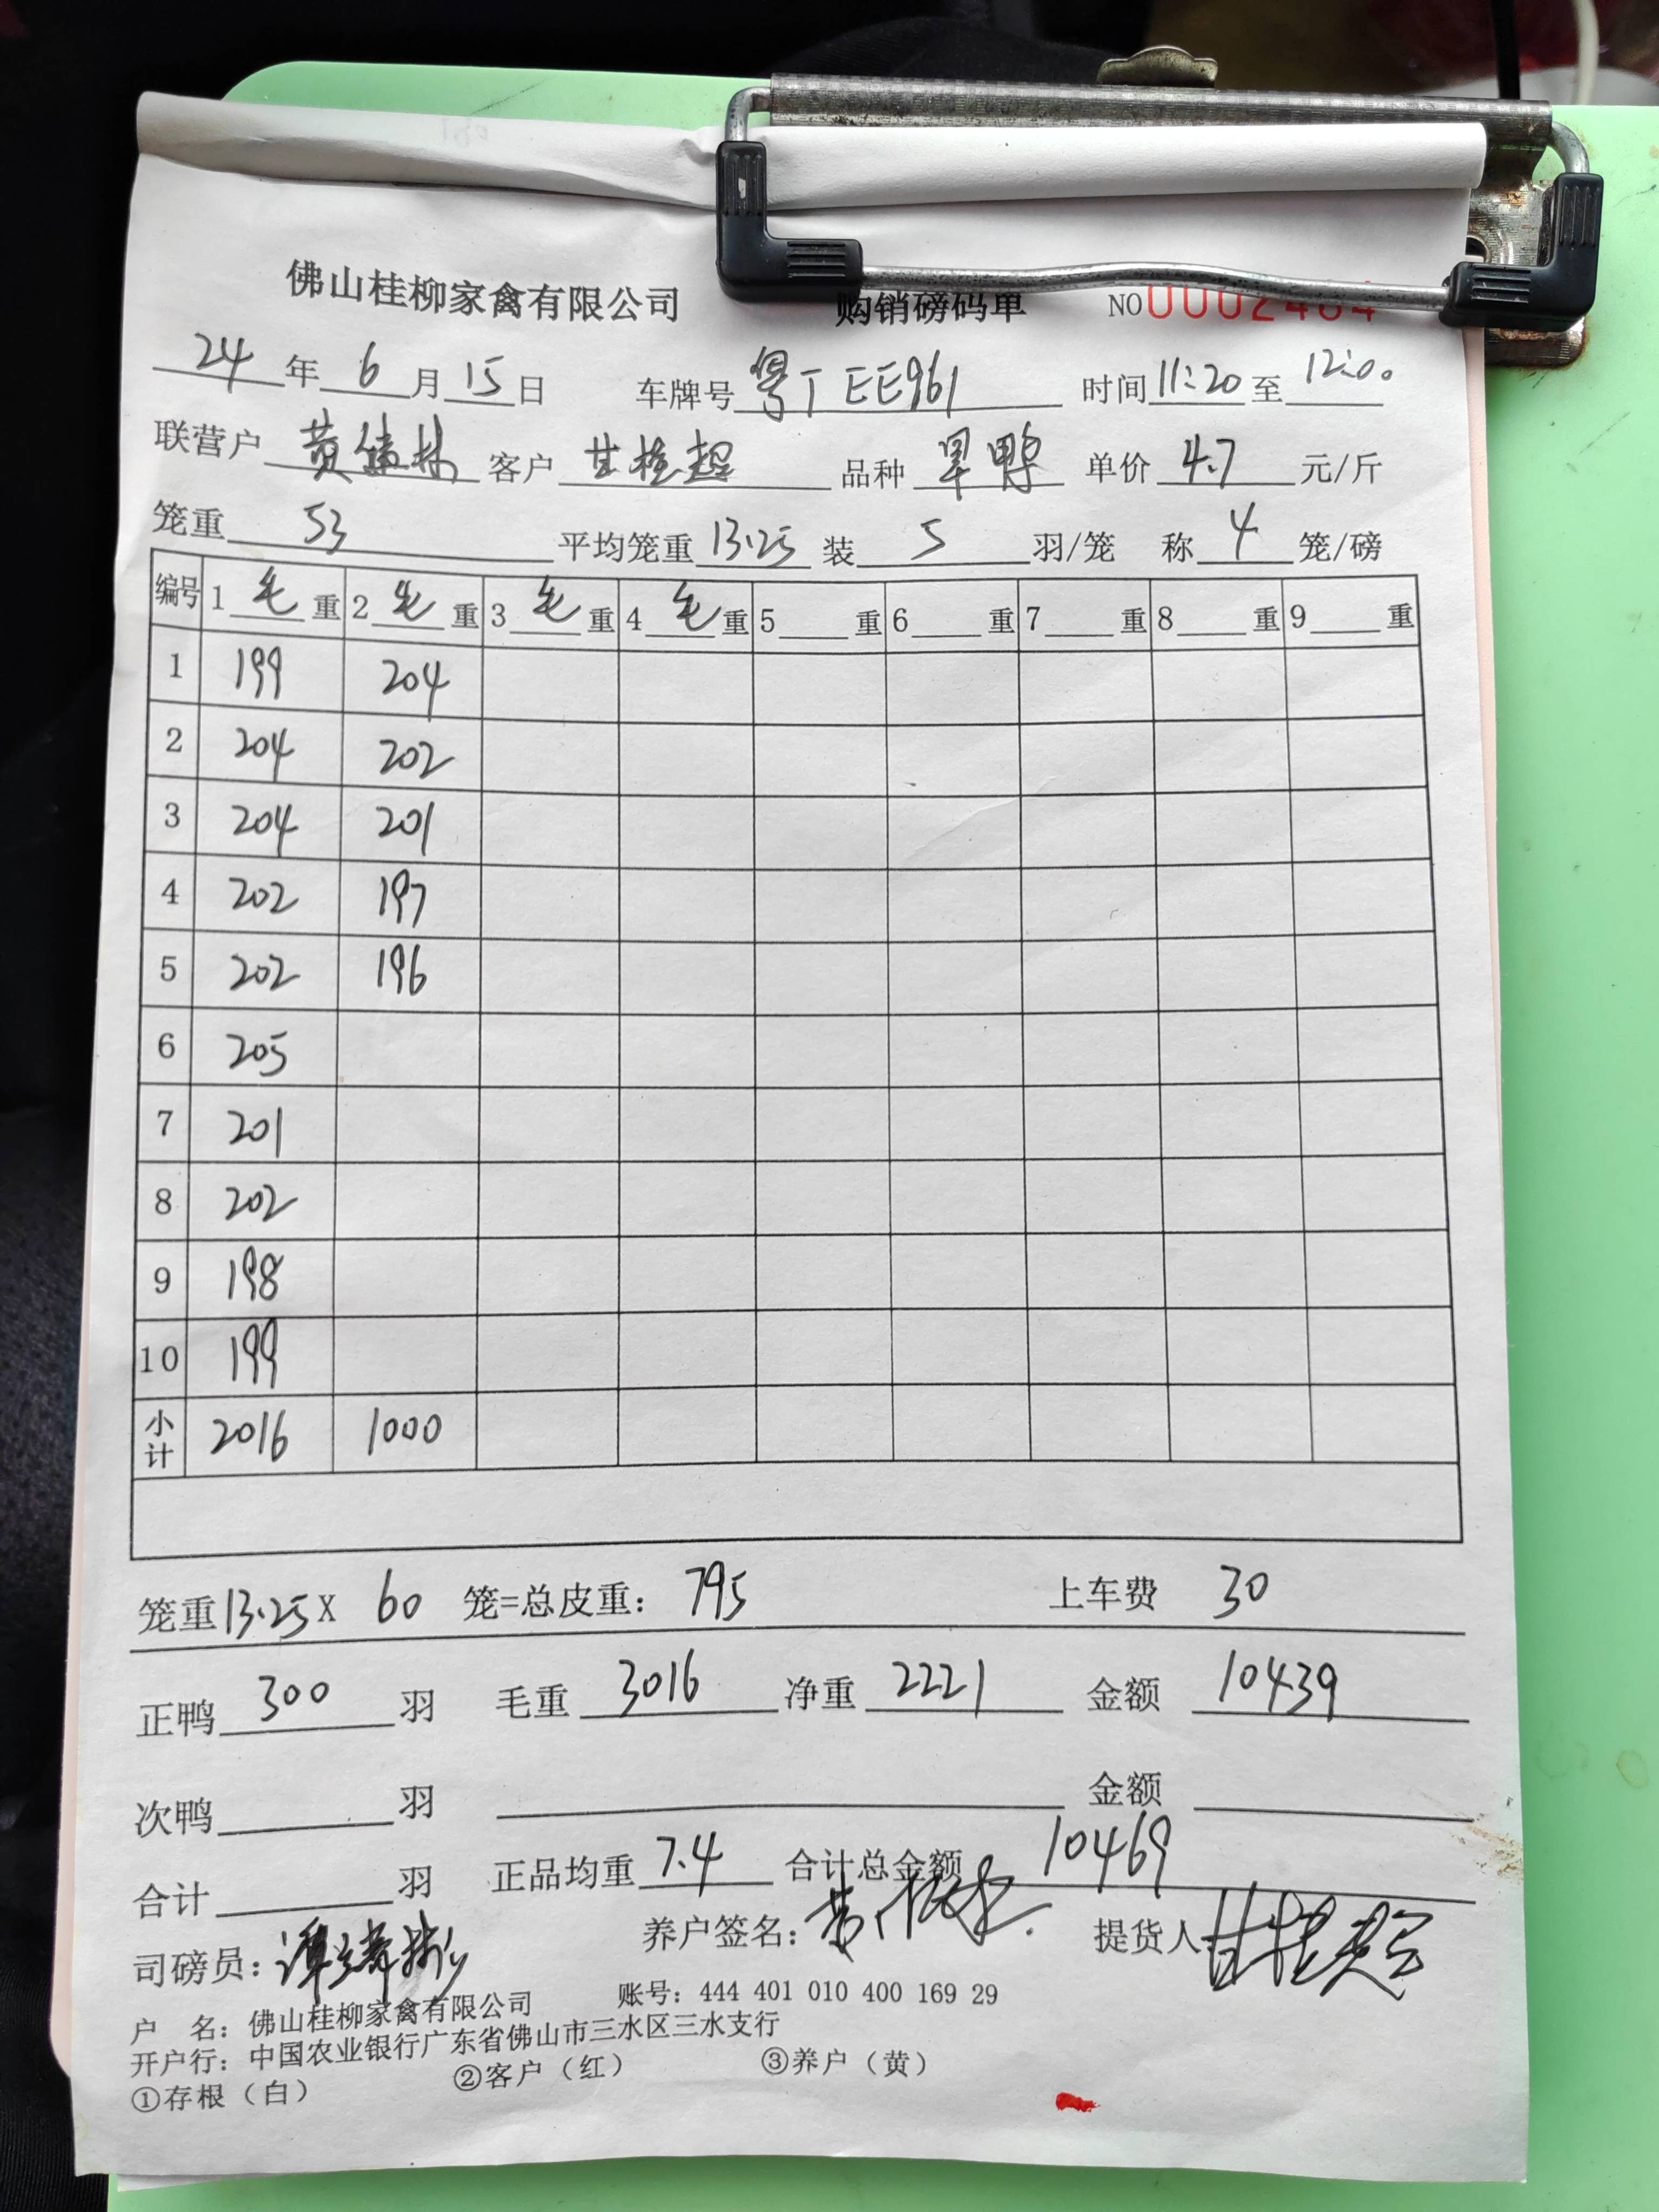 佛山桂柳家禽有限公司 购销磅码单 NO
24 年 6 月 15 日 车牌号 粤T EE961 时间 11:20 至 12:00
联营户 黄 客户 甘桂超 品种 旱鸭 单价 4.7 元/斤
笼重 53 平均笼重 13.25 装 5 羽/笼 称 4 笼/磅
编号 1 毛 重 2 毛 重 3 毛 重 4 毛 重 5 重 6 重 7 重 8 重 9 重
1 199 204
2 204 202
3 204 201
4 202 197
5 202 196
6 205
7 201
8 202
9 198
10 199
小计 2016 1000
笼重 13.25 X 60 笼=总皮重: 795 上车费 30
正鸭 300 羽 毛重 3016 净重 2221 金额 10439
次鸭 羽 金额
合计 羽 正品均重 7.4 合计总金额 10469
司磅员: 养户签名: 提货人 甘桂超
户 名: 佛山桂柳家禽有限公司 账号: 444 401 010 400 169 29
开户行: 中国农业银行广东省佛山市三水区三水支行
①存根（白） ②客户（红） ③养户（黄）